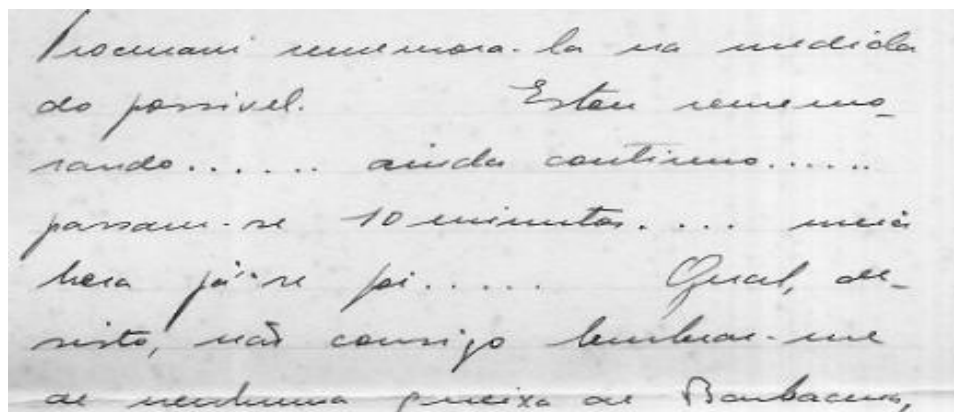 Procurarei rememora-la na medida
do possivel. Estou rememo_
rando...... ainda continuo......
passam-se 10 minutos.... meia
hora já-se foi..... Qual, de_
sisto, não consigo lembrar-me
de nenhuma queixa de Barbacena,